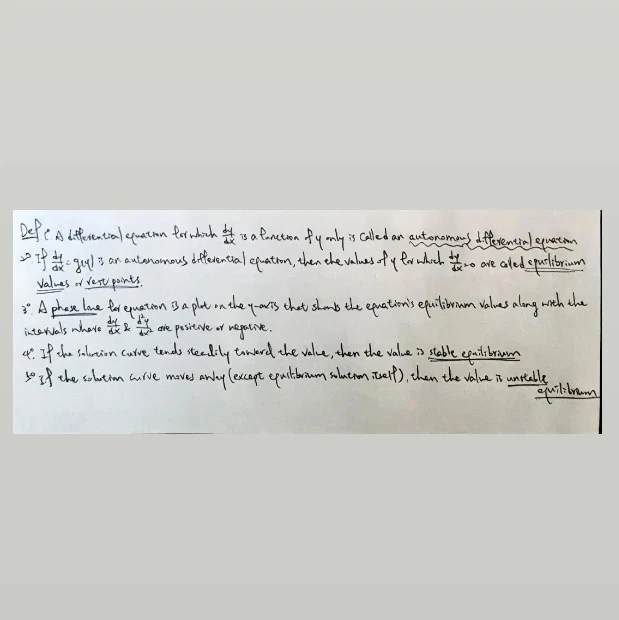 Def 1° A differential equation for which dy/dx is a function of y only is called an autonomous differential equation
2° If dy/dx = g(y) is an autonomous differential equation, then the values of y for which dy/dx = 0 are called equilibrium
values or rest points.
3° A phase line for equation is a plot on the y-axis that shows the equation's equilibrium values along with the
intervals where dy/dx & d²y/dx² are positive or negative.
4°. If the solution curve tends steadily toward the value, then the value is stable equilibrium
5° If the solution curve moves away (except equilibrium solution itself), then the value is unstable
equilibrium